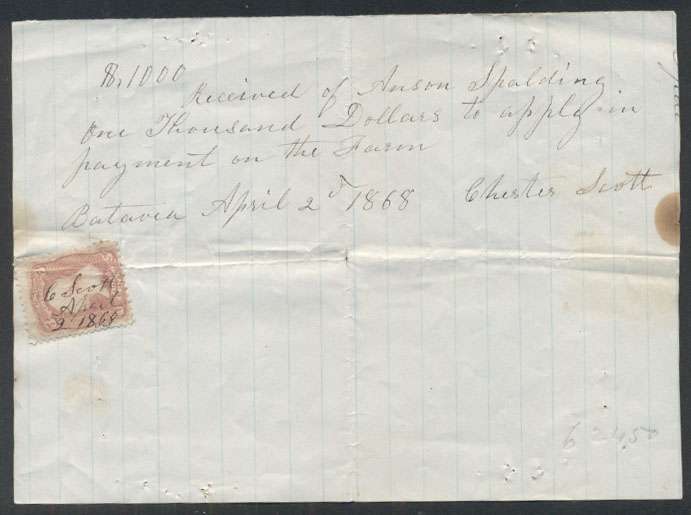 $,1000
Received of Anson Spalding
One Thousand Dollars to apply in
payment on the Farm
Batavia April 2d 1868 Chester Scott
C Scott
April
2 1868